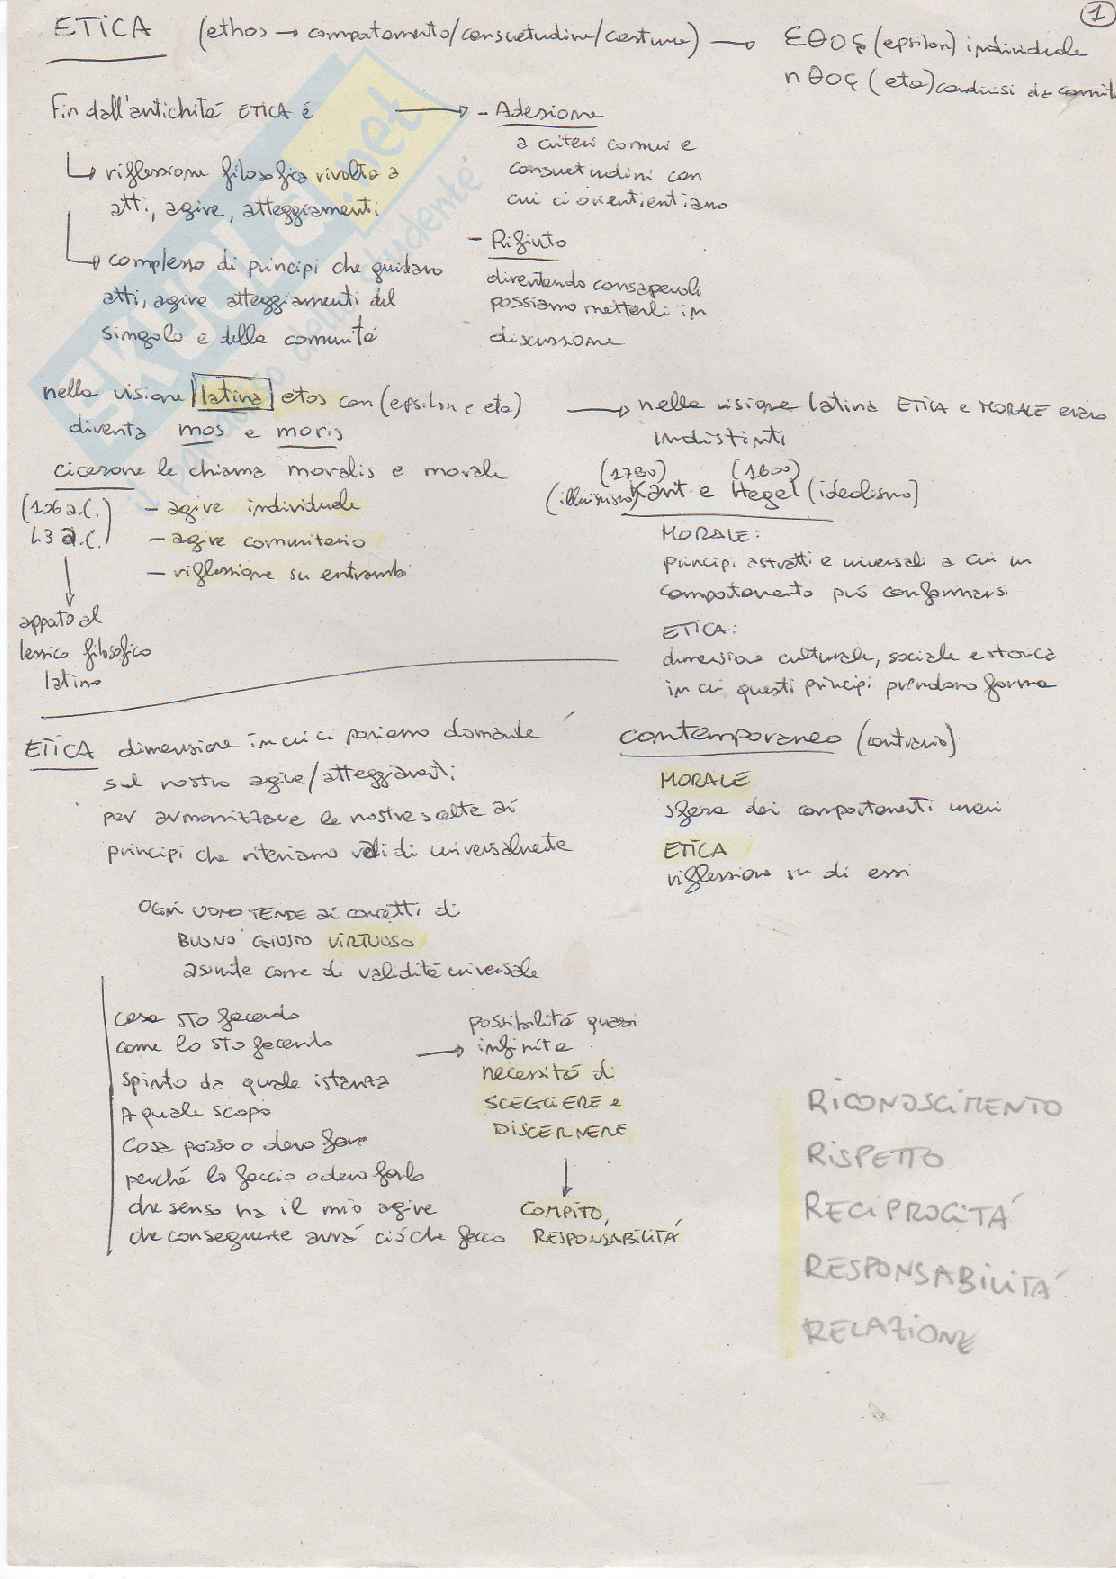 1
ETICA (ethos → comportamento/consuetudine/costume) → εθος (epsilon) individuale
ηθος (eta) condivisi da comunit
Fin dall'antichitá ETICA é →
riflessione filosofica rivolto a
atti, agire, atteggiamenti
complesso di principi che guidano
atti, agire atteggiamenti del
singolo e della comunitá
- Adesione
a criteri comuni e
consuetudini con
cui ci orientientiano
- Rifiuto
diventando consapevoli
possiamo metterli in
discussione
SKUOLA.net
nella visione latina etos con (epsilon e eta)
diventa mos e moris
cicerone le chiama moralis e morale
(106 a.C.
43 a.C.)
- agire individuale
- agire comunitario
- riflessione su entrambi
appato al
lessico filosofico
latino
→ nella visione latina ETICA e MORALE erano
indistinti
(1730) (1800)
(illuminismo) Kant e Hegel (idealismo)
MORALE:
principi astratti e universali a cui un
comportamento puó conformarsi
ETICA:
dimensione culturale, sociale e storica
in cui questi principi prendono forma
ETICA dimensione in cui ci poniamo domande
sul nostro agire/atteggiamenti
per armonizzare le nostre scelte ai
principi che riteniamo validi universalmente
contemporaneo (contrario)
MORALE
sfera dei comportamenti umani
ETICA
riflessione su di essi
OGNI UOMO TENDE ai concetti di
BUONO GIUSTO VIRTUOSO
assunte come di validitá universale
cosa sto facendo
come lo sto facendo
spinto da quale istanza
A quale scopo
Cosa posso o devo fare
perché lo faccio o devo farlo
che senso ha il mio agire
che conseguenze avrá ció che faccio
→ possibilitá quasi
infinite
necessitá di
SCEGLIERE e
DISCERNERE
COMPITO,
RESPONSABILITÁ
RICONOSCIMENTO
RISPETTO
RECIPROCITÁ
RESPONSABILITÁ
RELAZIONE